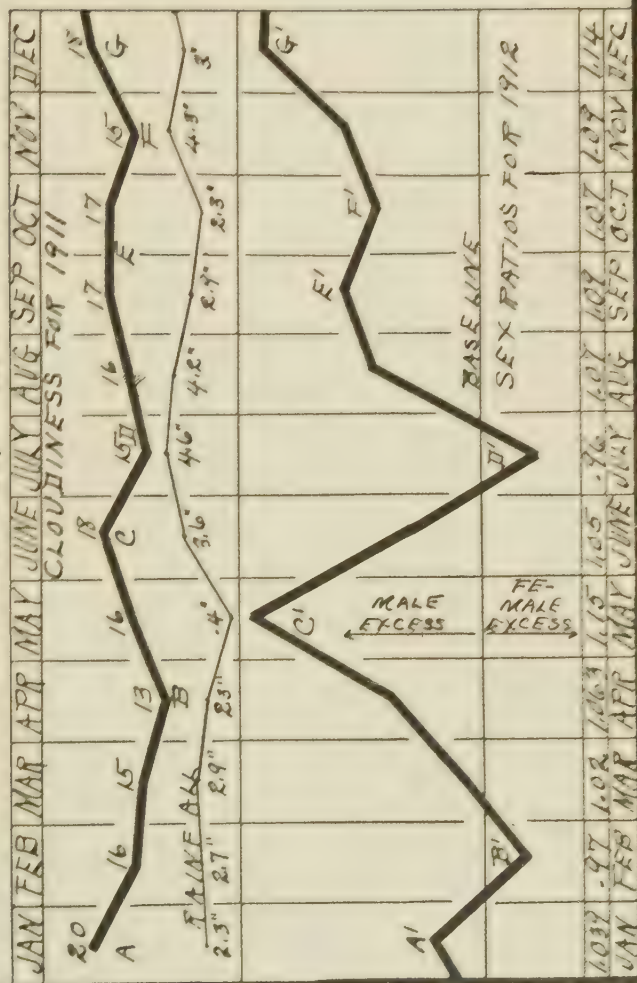 JAN FEB MAR APR MAY JUNE JULY AUG SEP OCT NOV DEC
CLOUDINESS FOR 1911
20 16 15 13 16 18 15 16 17 17 15 18
A B C D E F G
RAINFALL
2.3" 2.7" 2.9" 2.3" .4" 3.6" 4.6" 4.2" 2.9" 2.3" 4.3" 3"
A' B' C' D' E' F' G'
MALE
EXCESS
BASE LINE
FE-
MALE
EXCESS
SEX RATIOS FOR 1912
1.039 .97 1.02 1.063 1.15 1.05 .96 1.07 1.09 1.07 1.09 1.14
JAN FEB MAR APR MAY JUNE JULY AUG SEP OCT NOV DEC